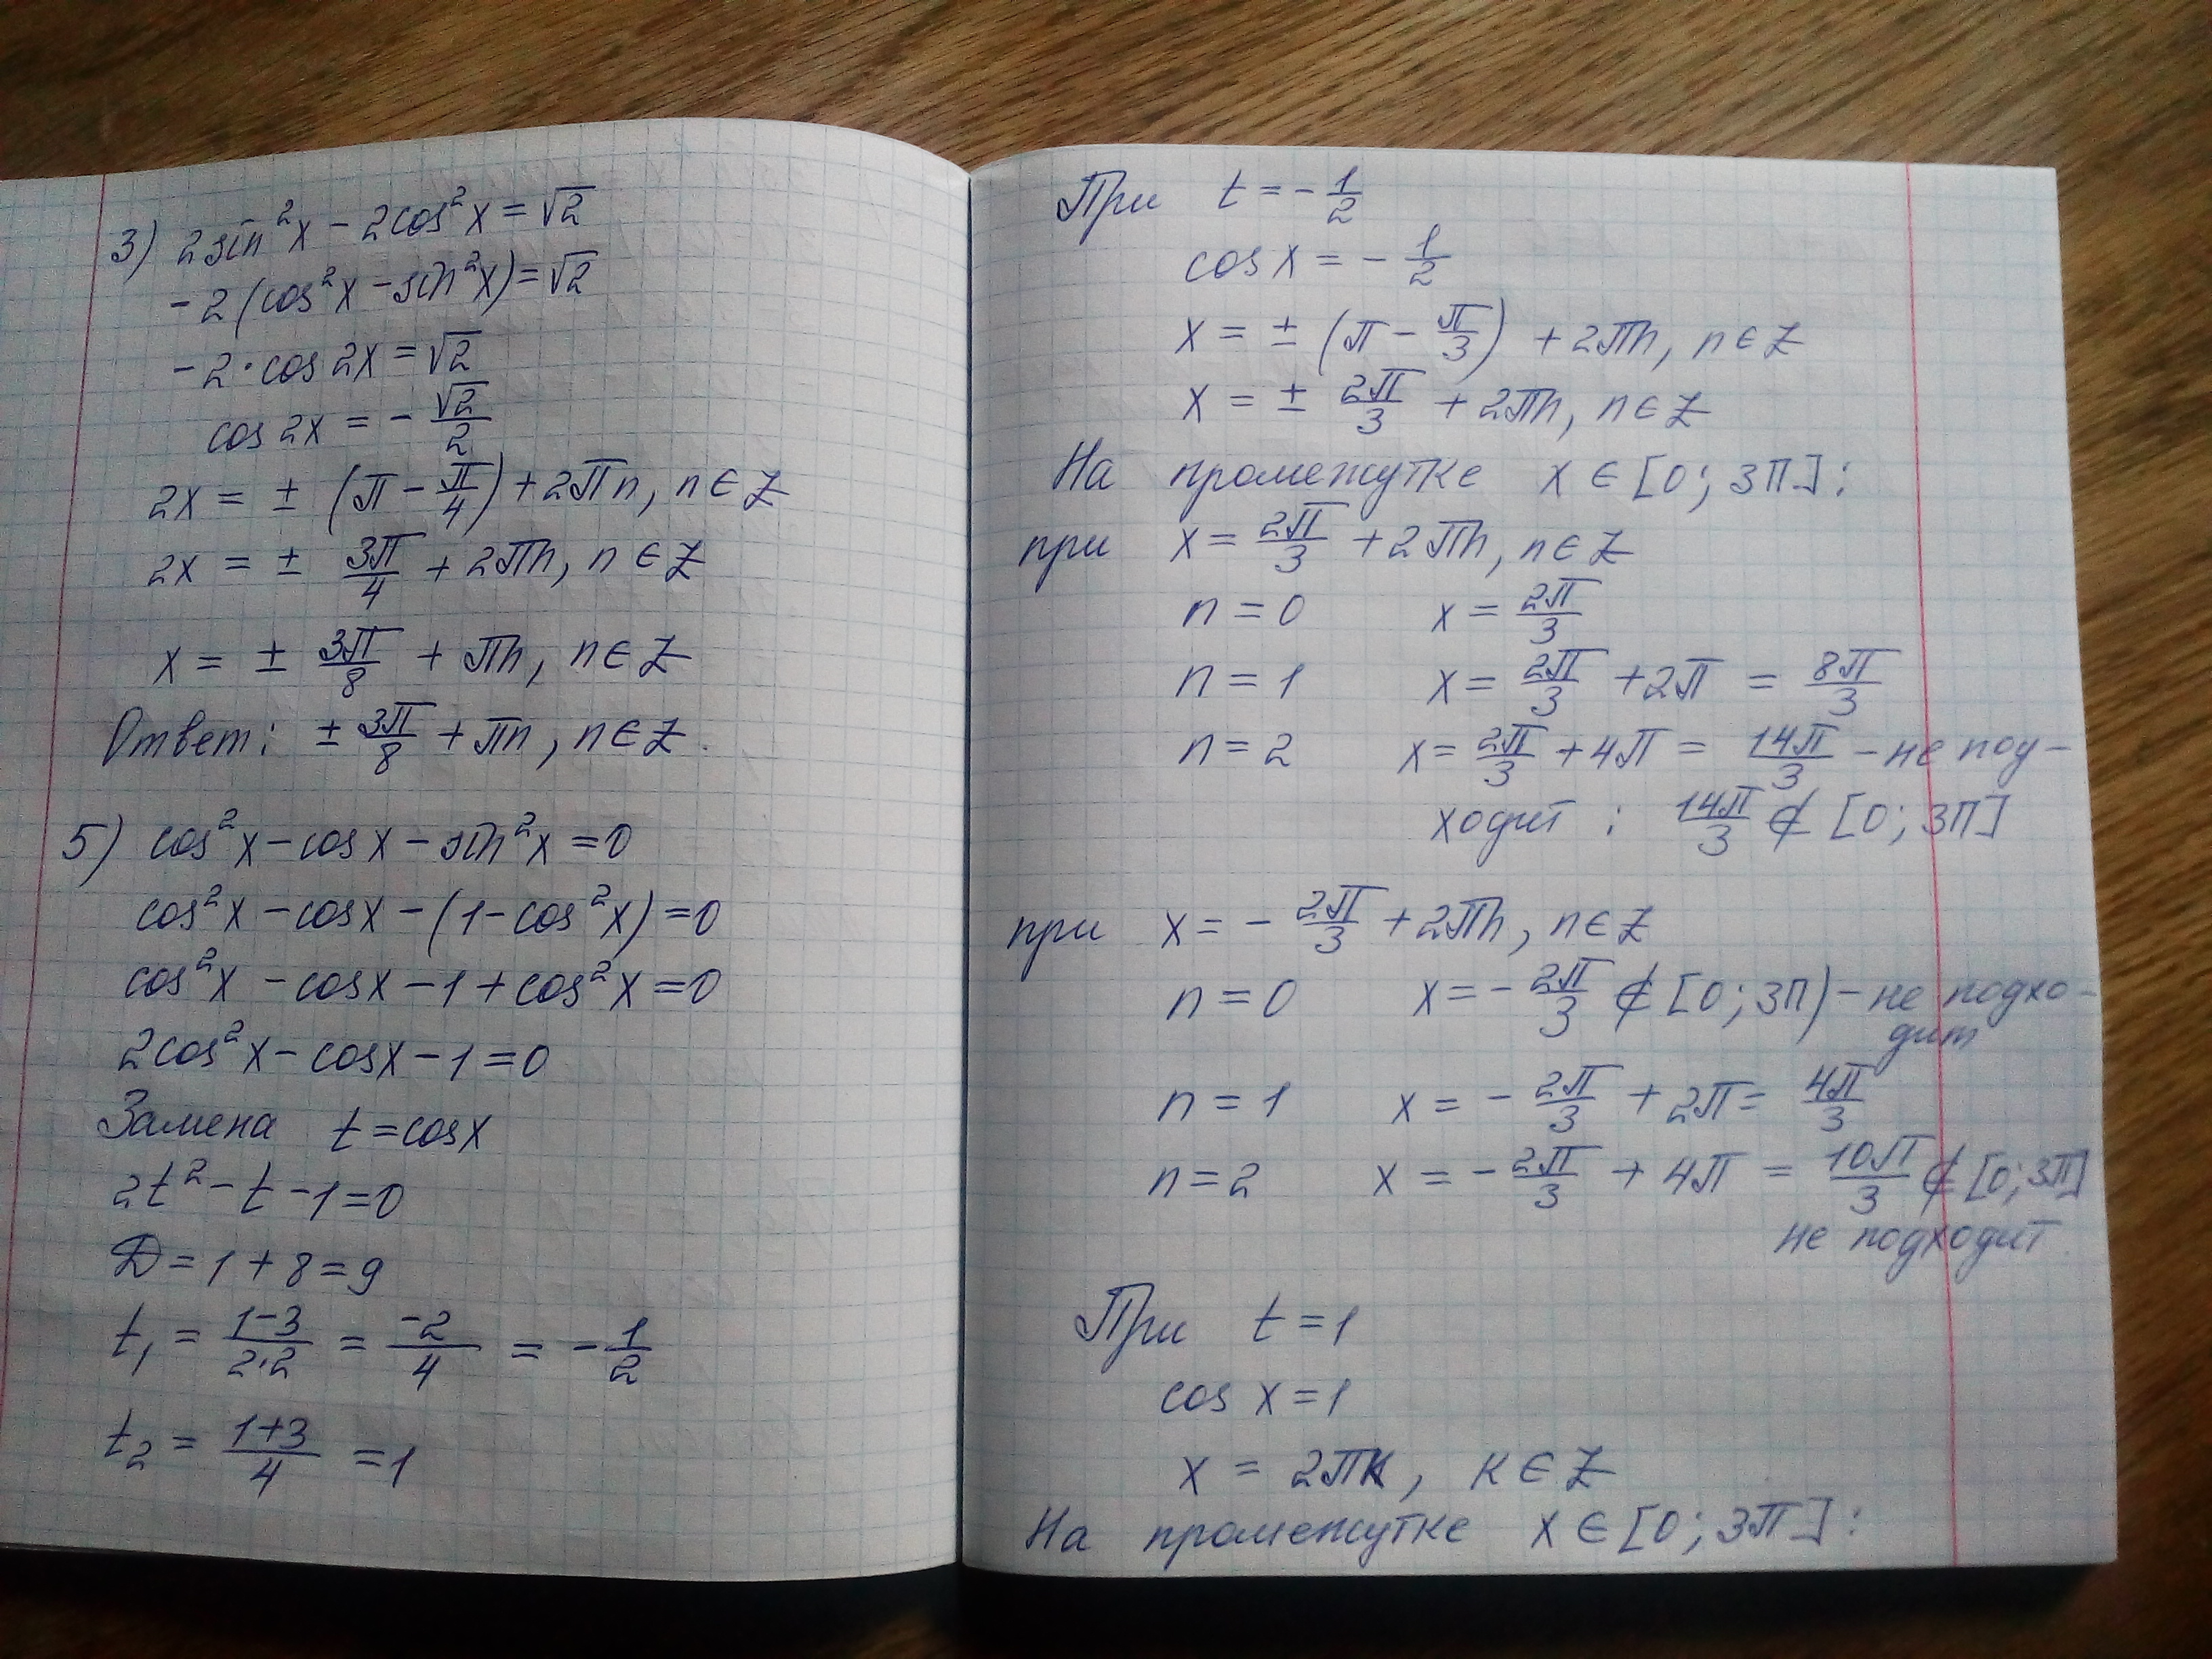 3) 2sin²x - 2cos²x = √2
-2(cos²x - sin²x) = √2
-2·cos 2x = √2
cos 2x = - √2/2
2x = ± (π - π/4) + 2πn, n ∈ Z
2x = ± 3π/4 + 2πn, n ∈ Z
x = ± 3π/8 + πn, n ∈ Z
Ответ: ± 3π/8 + πn, n ∈ Z.
5) cos²x - cosx - sin²x = 0
cos²x - cosx - (1 - cos²x) = 0
cos²x - cosx - 1 + cos²x = 0
2cos²x - cosx - 1 = 0
Замена t = cosx
2t² - t - 1 = 0
D = 1 + 8 = 9
t₁ = (1-3)/(2·2) = -2/4 = - 1/2
t₂ = (1+3)/4 = 1
При t = - 1/2
cos x = - 1/2
x = ± (π - π/3) + 2πn, n ∈ Z
x = ± 2π/3 + 2πn, n ∈ Z
На промежутке x ∈ [0; 3π]:
при x = 2π/3 + 2πn, n ∈ Z
n = 0 x = 2π/3
n = 1 x = 2π/3 + 2π = 8π/3
n = 2 x = 2π/3 + 4π = 14π/3 - не под-
ходит: 14π/3 ∉ [0; 3π]
при x = - 2π/3 + 2πn, n ∈ Z
n = 0 x = - 2π/3 ∉ [0; 3π) - не подхо-
дит
n = 1 x = - 2π/3 + 2π = 4π/3
n = 2 x = - 2π/3 + 4π = 10π/3 ∉ [0; 3π]
не подходит
При t = 1
cos x = 1
x = 2πк, к ∈ Z
На промежутке x ∈ [0; 3π]: